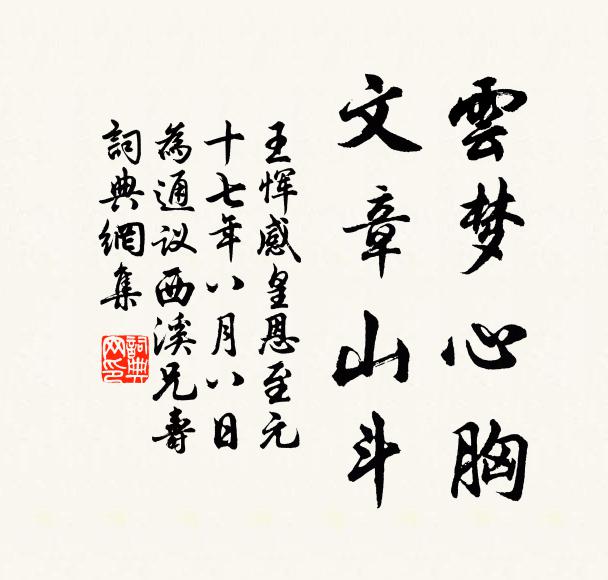 雲梦心胸
文章山斗
王恽感皇恩至元
十七年八月八日
為通议西溪兄壽
詞典網集
詞典網印